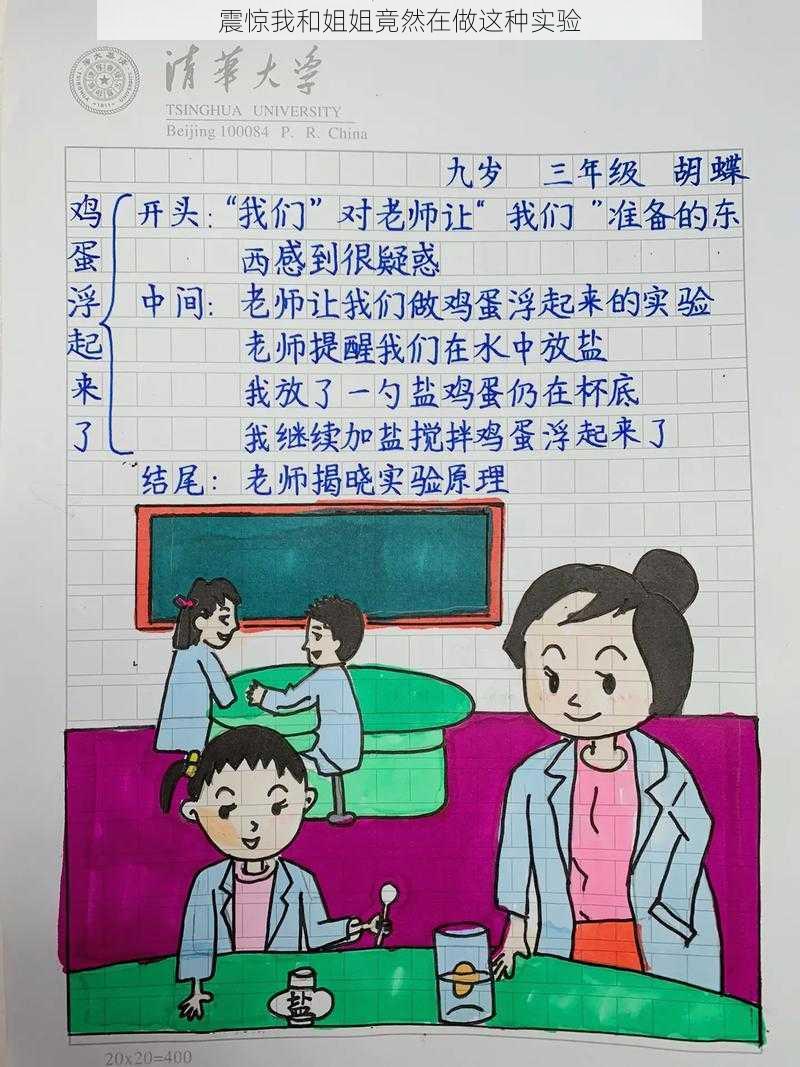 震惊我和姐姐竟然在做这种实验
清华大学
TSINGHUA UNIVERSITY
Beijing 100084 P. R. China
九岁 三年级 胡蝶
鸡蛋浮起来了
开头:“我们”对老师让“我们”准备的东
西感到很疑惑
中间:老师让我们做鸡蛋浮起来的实验
老师提醒我们在水中放盐
我放了一勺盐鸡蛋仍在杯底
我继续加盐搅拌鸡蛋浮起来了
结尾:老师揭晓实验原理
盐
20x20=400